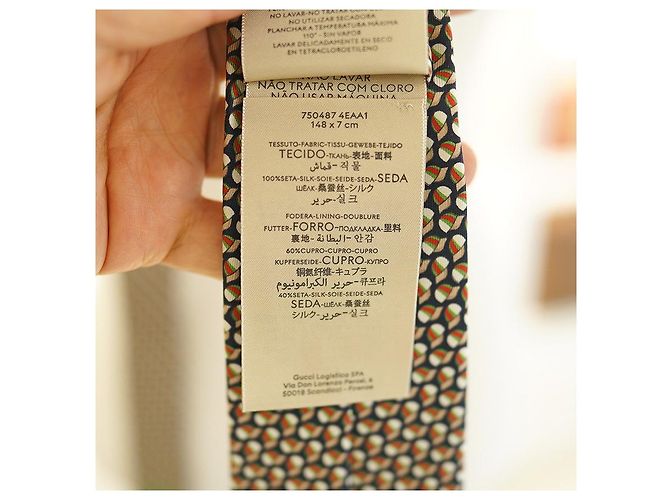 NO LAVAR-NO TRATAR COM
NO UTILIZAR SECADORA
PLANCHAR A TEMPERATURA MÁXIMA
110°-SIN VAPOR
LAVAR DELICADAMENTE EN SECO
EN TETRACLOROETILENO
NÃO LAVAR
NÃO TRATAR COM CLORO
NÃO USAR MÁQUINA
750487 4EAA1
148 x 7 cm
TESSUTO-FABRIC-TISSU-GEWEBE-TEJIDO
TECIDO-ТКАНЬ-表地-面料
قماش-직물
100%SETA-SILK-SOIE-SEIDE-SEDA-SEDA
ШЁЛК-桑蚕丝-シルク
حرير-실크
FODERA-LINING-DOUBLURE
FUTTER-FORRO-ПОДКЛАДКА-里料
裏地-البطانة-안감
60%CUPRO-CUPRO-CUPRO
KUPFERSEIDE-CUPRO-КУПРО
铜氨纤维-キュプラ
حرير الكبرامونيوم-큐프라
40%SETA-SILK-SOIE-SEIDE-SEDA
SEDA-ШЁЛК-桑蚕丝
シルク-حرير-실크
Gucci Logistica SPA
Via Don Lorenzo Perosi, 6
50018 Scandicci - Firenze